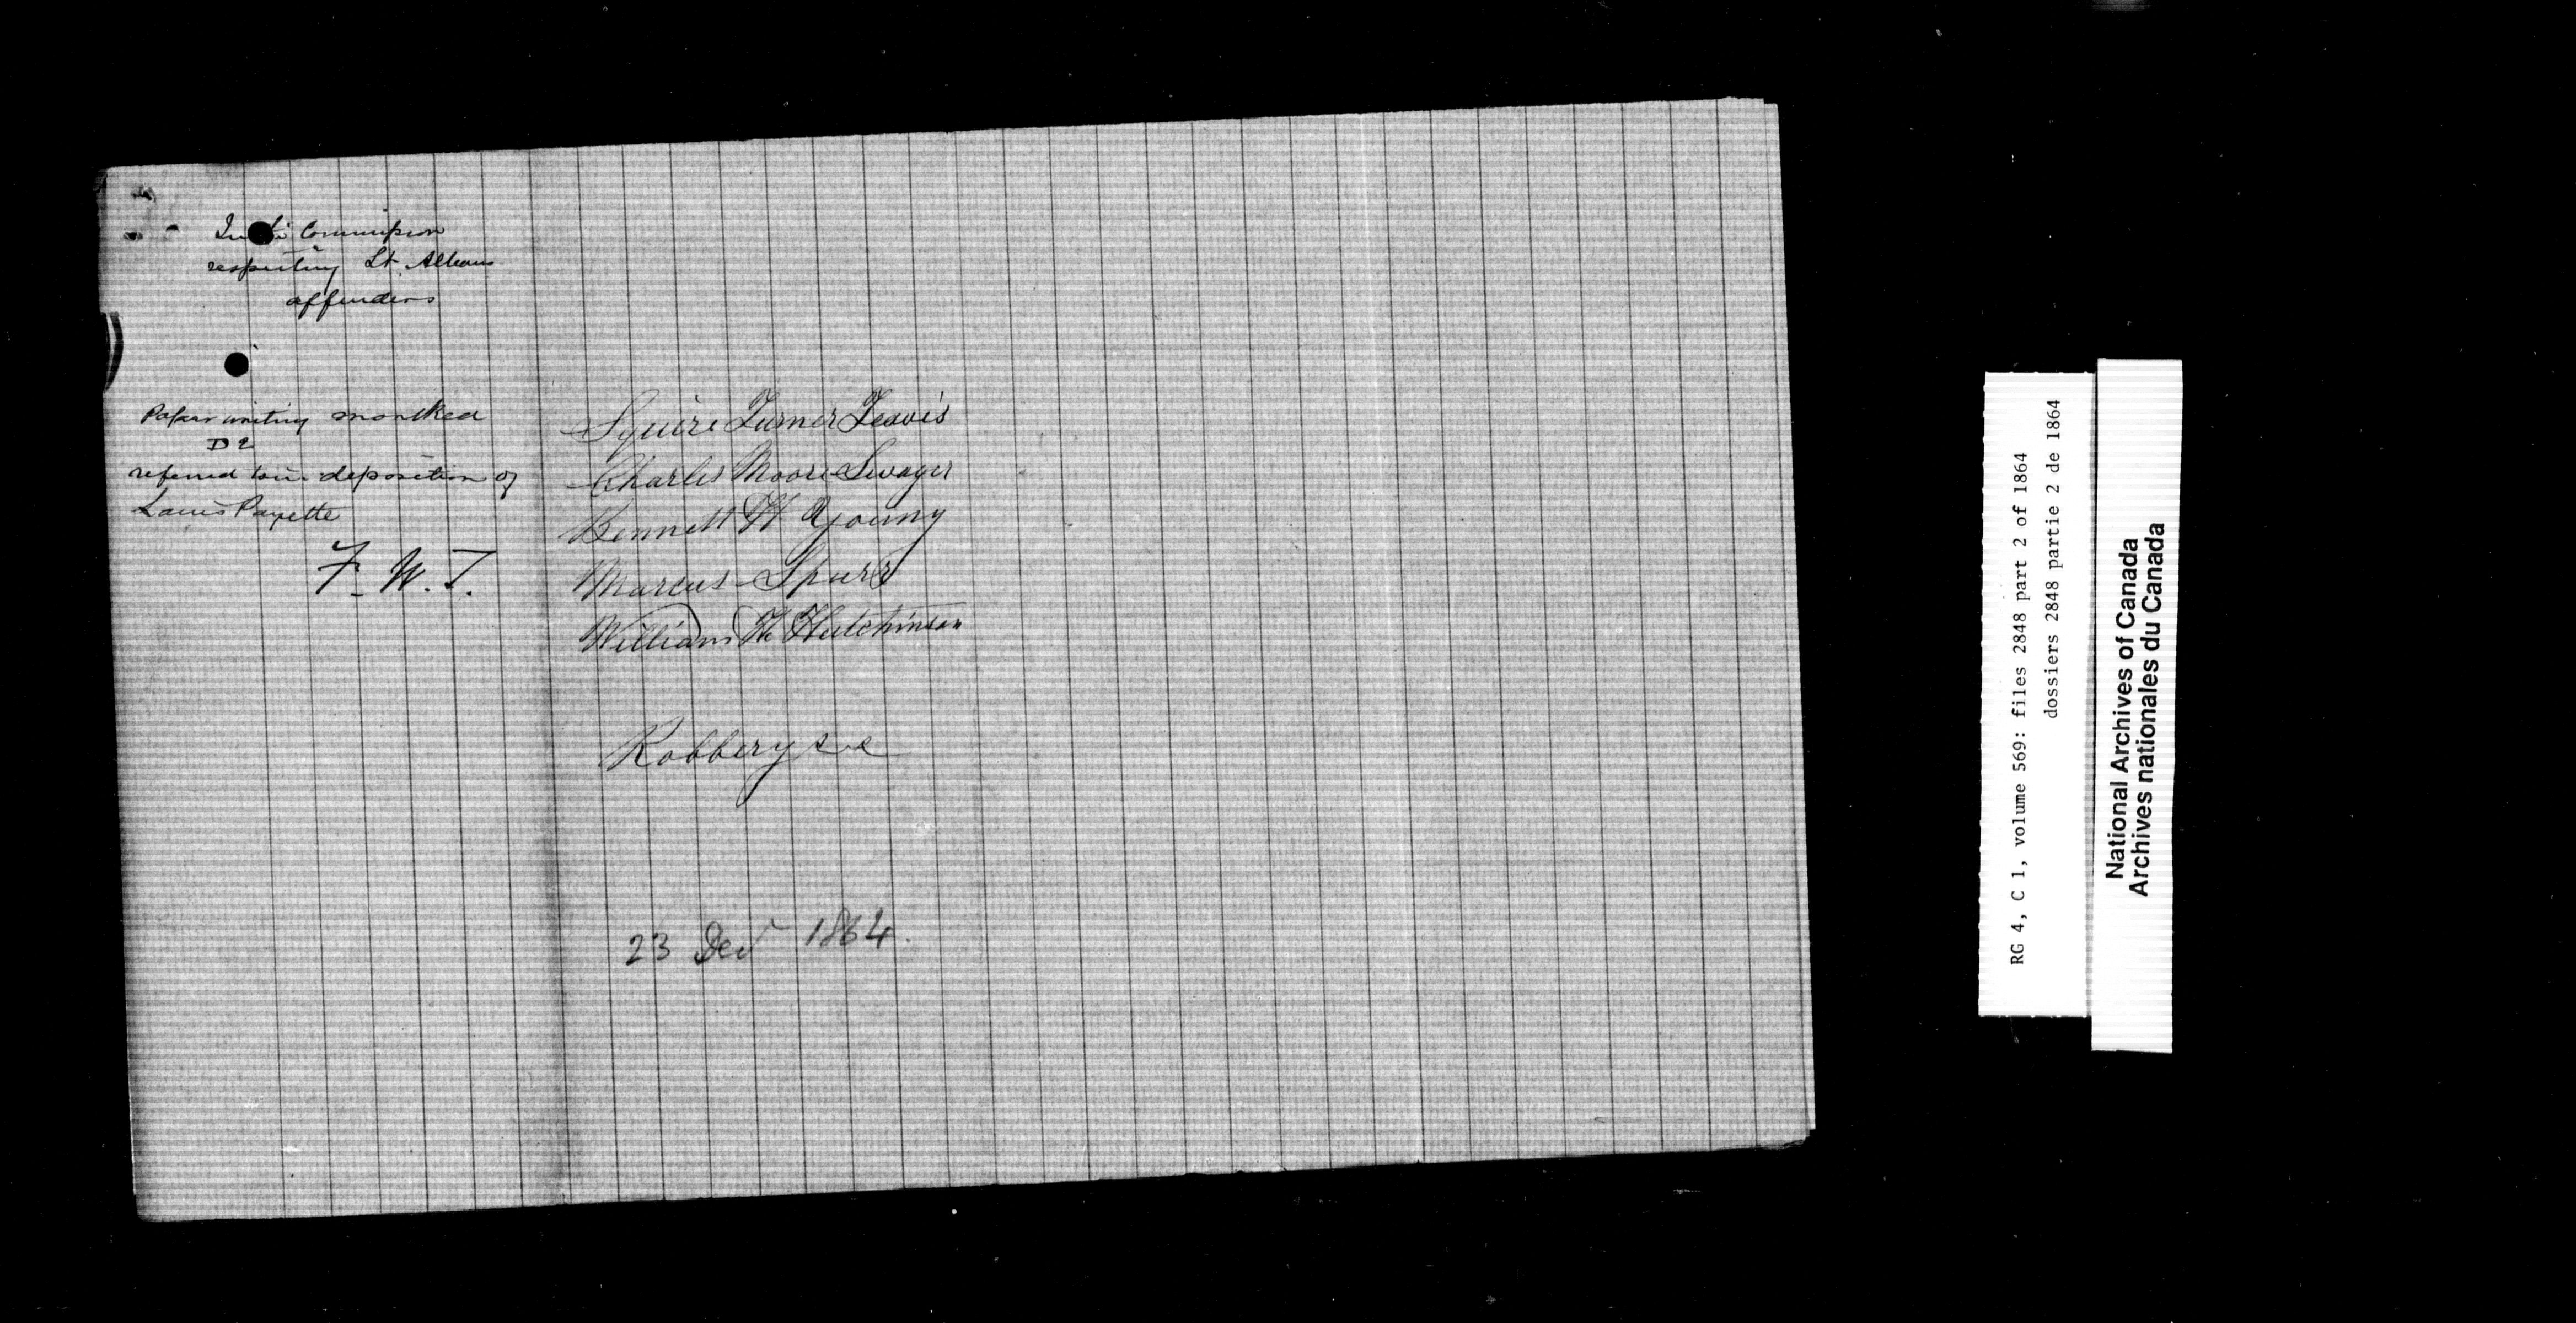 In the Commission
respecting St. Albans
offenders
Paper writing marked
D 2
referred to in deposition of
Louis Payette
F. W. T.
Squire Turner Teavis
Charles Moore Swager
Bennett H Young
Marcus Spurr
William H. Hutchinson
Robbery &c
23 Decr 1864.
RG 4, C 1, volume 569: files 2848 part 2 of 1864
dossiers 2848 partie 2 de 1864
National Archives of Canada
Archives nationales du Canada